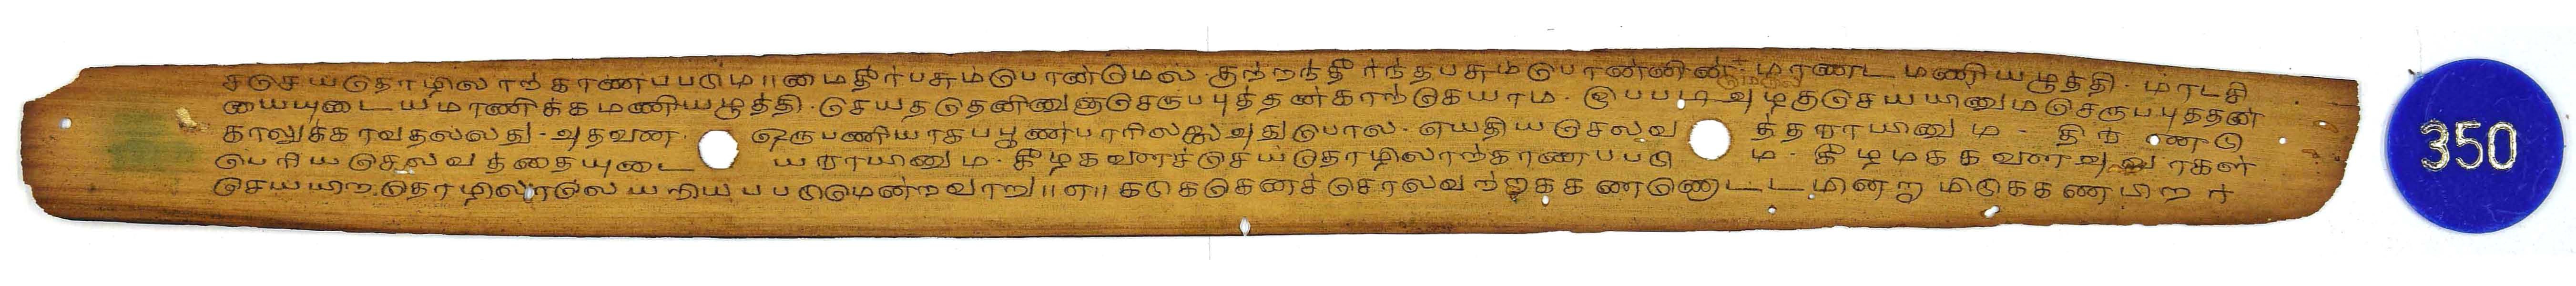 சசெயதொழிலாற்காணபபடும॥மைதீர்பசும்பொன்மெல. குற்றந்தீர்ந்தபசும்பொன்னின் மாண்ட மணியழுத்தி. மாடசி
மையையுடையமாணிக்கமணியழுத்தி. செயததெனினுஞசெருபபுத்தன்காற்கெயாம. இபபடி அழகுசெயயினுமசெருபபுத்தன்
காலுக்காவதல்லது. அதவண. ஒருபணியாகப்பூண்பாரில்லை அதுபொல. எயதியசெலவ த்தராயினும. திரண்ட
பெரியசெல்வத்தையுடை யராயினும. கீழகளைச்செயதொழிலாற்காணபபடு ம கீழமககளை அவரகள்
செயயிற தொழிலாலெயறியபபடுமென்றவாறு॥எ॥கடுகெனச்சொலவற்றக கணணொட்டமின்று மிடுககணபிறர்
350